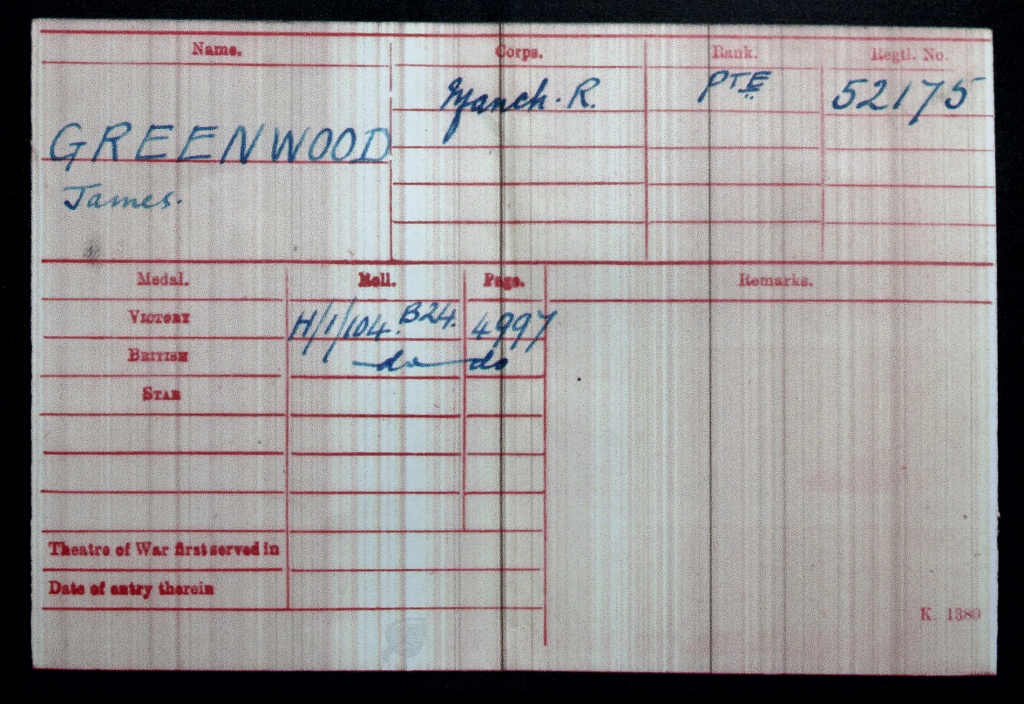 Name. Corps. Rank. Regtl. No.
Manch. R. PTE 52175
GREENWOOD
James.
Medal. Roll. Page. Remarks.
VICTORY H/1/104.B24. 4997
BRITISH do do
STAR
Theatre of War first served in
Date of entry therein
K. 1380